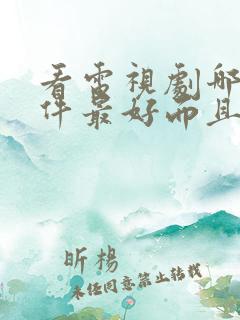 看電視劇哪
件最好而且
昕楊
未经同意禁止转载